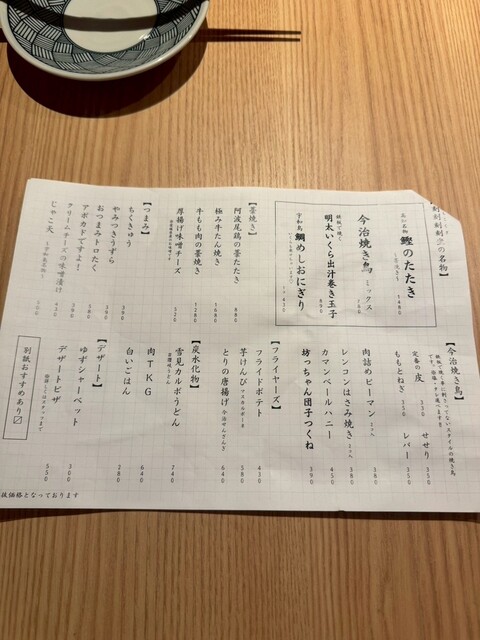 名物】
高知名物 鰹のたたき
1480
今治焼き鳥 ミックス
鉄板で焼く
明太いくら出汁巻き玉子
880
宇和島 鯛めしおにぎり
【藁焼き】
阿波尾鶏の藁たたき 880
極み牛たん焼き 1680
牛もも肉の藁焼き 1280
厚揚げ味噌チーズ 520
【つまみ】
ちくきゅう 390
やみつきすずら
おつまみトロたく 580
アボカドですよ! 390
クリームチーズの味噌漬け 430
じゃこ天
【今治焼き鳥】
定番の皮 330
せせり 350
ももとねぎ 350
レバー 350
肉詰めピーマン 380
レンコンはさみ焼き 380
カマンベールハニー 450
坊っちゃん団子つくね 390
【フライヤーズ】
フライドポテト 430
芋けんぴ マスカルポーネ 580
とりの唐揚げ 今治せんざんき 640
【炭水化物】
雪見カルボうどん 740
肉TKG 640
白いごはん 280
【デザート】
ゆずシャーベット 300
デザートピザ 550
別紙おすすめあり〼
抜価格となっております